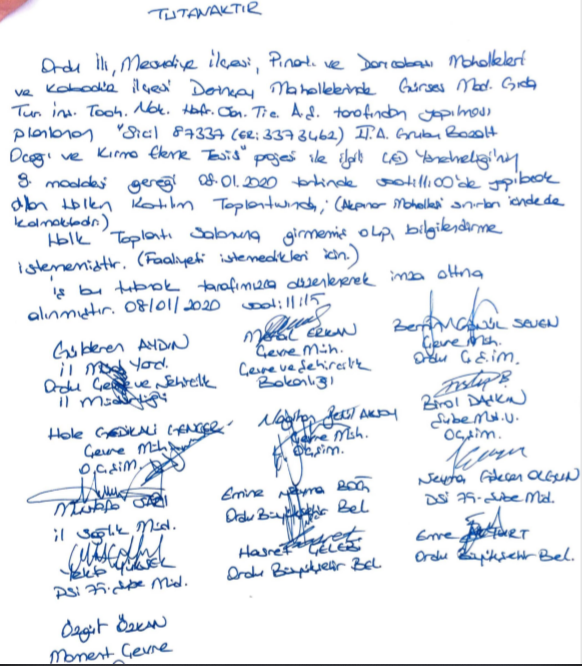 TUTANAKTIR
Ordu İli, Mesudiye ilçesi, Pınarlı ve Darıcabaşı Mahalleleri
ve Kabadüz ilçesi Derinçay Mahallelerinde Gürses Mad. Gıda
Tur. inş. Taah. Nak. San. Tic. A.Ş. tarafından yapılması
planlanan "Sicil 87337 (ER: 3373462) II.A. Grubu Bazalt
Ocağı ve Kırma Eleme Tesisi" projesi ile ilgili ÇED Yönetmeliği'nin
9. maddesi gereği 08.01.2020 tarihinde saat 11:00'de yapılacak
olan Halkın Katılımı Toplantısında, (Mahallesi sınırları içinde de
kalmaktadır.)
Halk Toplantı salonuna girmemiş olup, bilgilendirme
istememiştir. (Faaliyeti istemedikleri için.)
iş bu tutanak tarafımızca düzenlenerek imza altına
alınmıştır. 08/01/2020 saat: 11:15
Gülderen AYDIN
il Müd. Yard.
Ordu Çevre ve Şehircilik
il Müdürlüğü
Meral ERKAN
Çevre Müh.
Çevre ve Şehircilik
Bakanlığı
SEVEN
Çevre Müh.
Ordu Ç.Ş.İ.M.
Birol
Şube Md. V.
O.Ç.Ş.İ.M.
Hale GEDİKALİ GENÇER
Çevre Müh.
O.Ç.Ş.İ.M.
AKSOY
Çevre Müh.
O.Ç.Ş.İ.M.
OLGUN
DSİ 75. Şube Müd.
Mustafa
il Sağlık Müd.
Emine
Ordu Büyükşehir Bel.
Emre
Ordu Büyükşehir Bel.
YÜKSEK
DSİ 75. Şube Müd.
Hasret ÇELEBİ
Ordu Büyükşehir Bel.
Özgür ÖZKAN
Moment Çevre